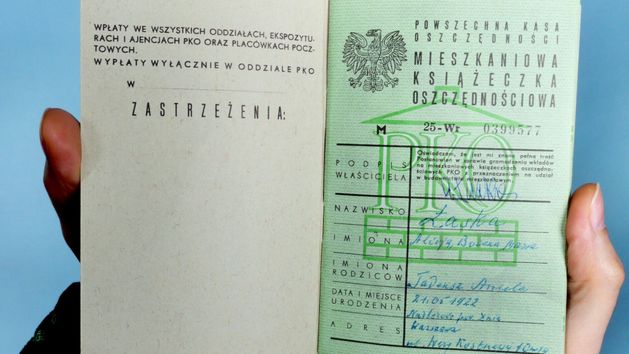 WPŁATY WE WSZYSTKICH ODDZIAŁACH, EKSPOZYTU-
RACH I AJENCJACH PKO ORAZ PLACÓWKACH POCZ-
TOWYCH.
WYPŁATY WYŁĄCZNIE W ODDZIALE PKO
W
ZASTRZEŻENIA:
POWSZECHNA KASA
OSZCZĘDNOŚCI
MIESZKANIOWA
KSIĄŻECZKA
OSZCZĘDNOŚCIOWA
M 25-Wr 0399577
PKO
Oświadczam, że jest mi znana pełna treść
Postanowień w sprawie gromadzenia wkładów
na mieszkaniowych książeczkach oszczędno-
ściowych PKO z przeznaczeniem na udział
w budownictwie mieszkaniowym.
PODPIS
WŁAŚCICIELA
NAZWISKO Łaska
IMIONA Alicja
IMIONA
RODZICÓW Tadeusz Aniela
DATA I MIEJSCE
URODZENIA 21.05 1922
ADRES Warszawa
ul.